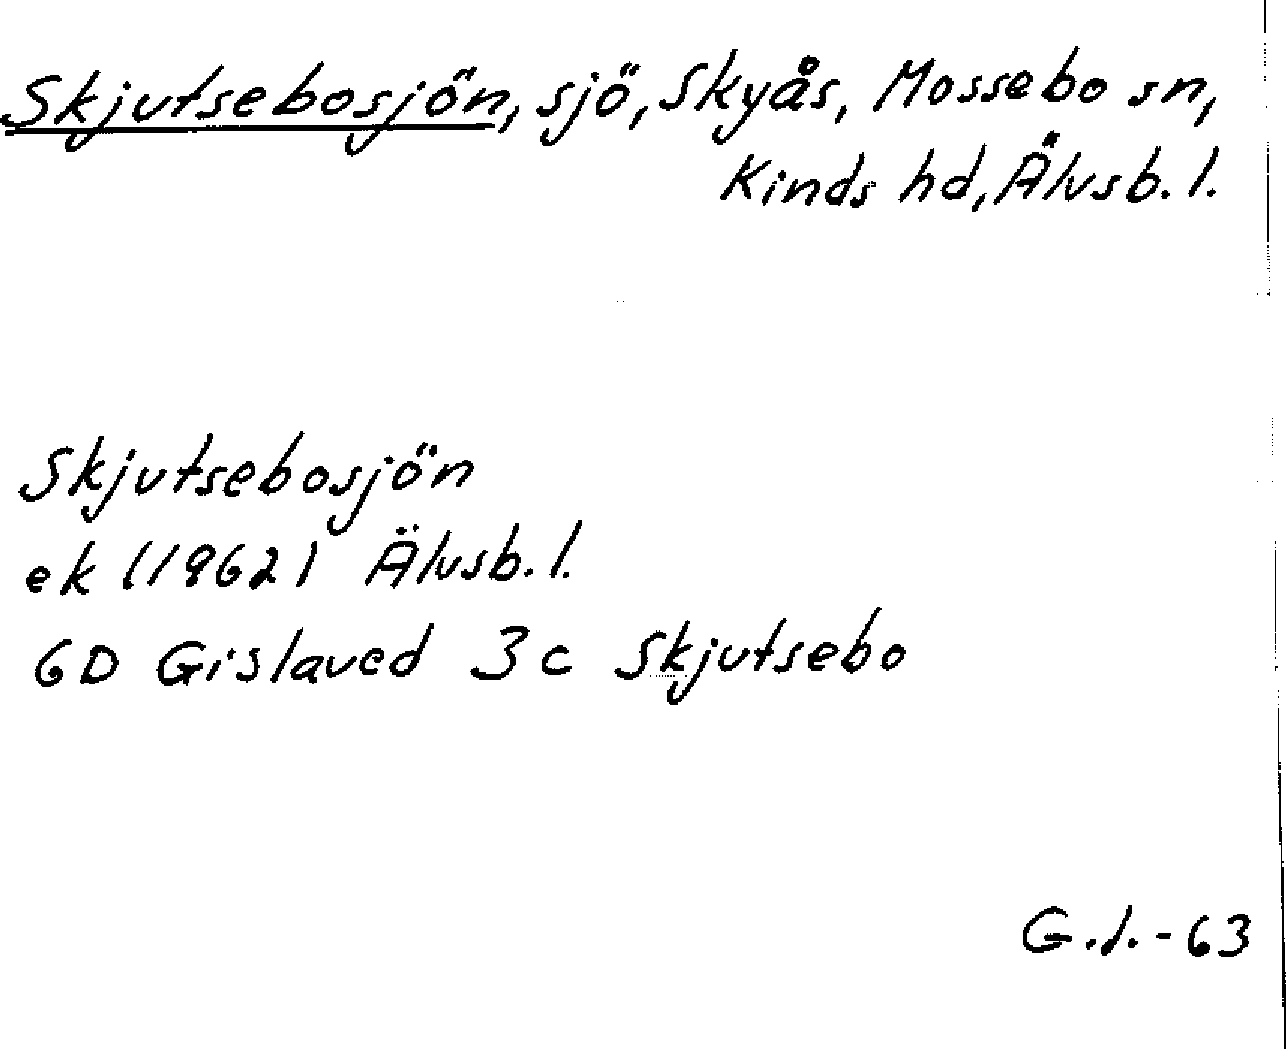 Skjutsebosjön, sjö, Skyås, Mossebo sn,
Kinds hd, Älvsb. l.
Skjutsebosjön
ek (1962) Älvsb. l.
6D Gislaved 3c Skjutsebo
G.l.-63